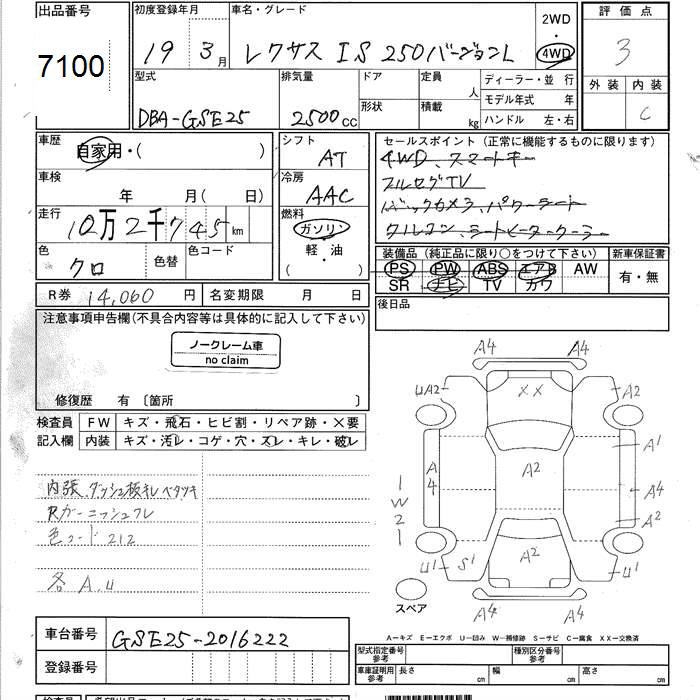 出品番号 初度登録年月 車名・グレード 2WD・4WD 評価点
7100 19 年 3 月 レクサス IS 250 バージョンL 3
型式 排気量 ドア 定員 人 ディーラー・並 行 外装 内装
DBA-GSE25 2500 cc 形状 積載 kg モデル年式 年 C
ハンドル 左・右
車歴 自家用・( ) シフト AT セールスポイント (正常に機能するものに限ります)
4WD、スマートキー
車検 年 月( 日) 冷房 AAC フルセグTV
バックカメラ、パワーシート
走行 10万2千745 km 燃料 ガソリン・軽・油 ( ) クルコン、シートヒータークーラー
色 クロ 色替 色コード 装備品 (純正品に限り○をつけて下さい) 新車保証書
PS PW ABS エアB AW 有・無
R券 14,060 円 名変期限 月 日 SR ナビ TV カワ
注意事項申告欄(不具合内容等は具体的に記入して下さい) 後日品
ノークレーム車
no claim
修復歴 有 〔箇所 〕
検査員 FW キズ・飛石・ヒビ割・リペア跡・×要
記入欄 内装 キズ・汚レ・コゲ・穴・スレ・キレ・破レ
内張、ダッシュ板キレベタツキ
Rガーニッシュフレ
色コード 212
各 A.U
A4 A4
UA2 XX A2
A1
A4 A2 A4
1W21 A2
U1 S1 A2 U1
スペア A4 A4
A―キズ E―エクボ U―凹み W―補修跡 S―サビ C―腐食 XX―交換済
車台番号 GSE25-2016222
型式指定番号 参考 種別区分番号 参考
登録番号 車庫証明用 参考 長さ cm 幅 cm 高さ cm